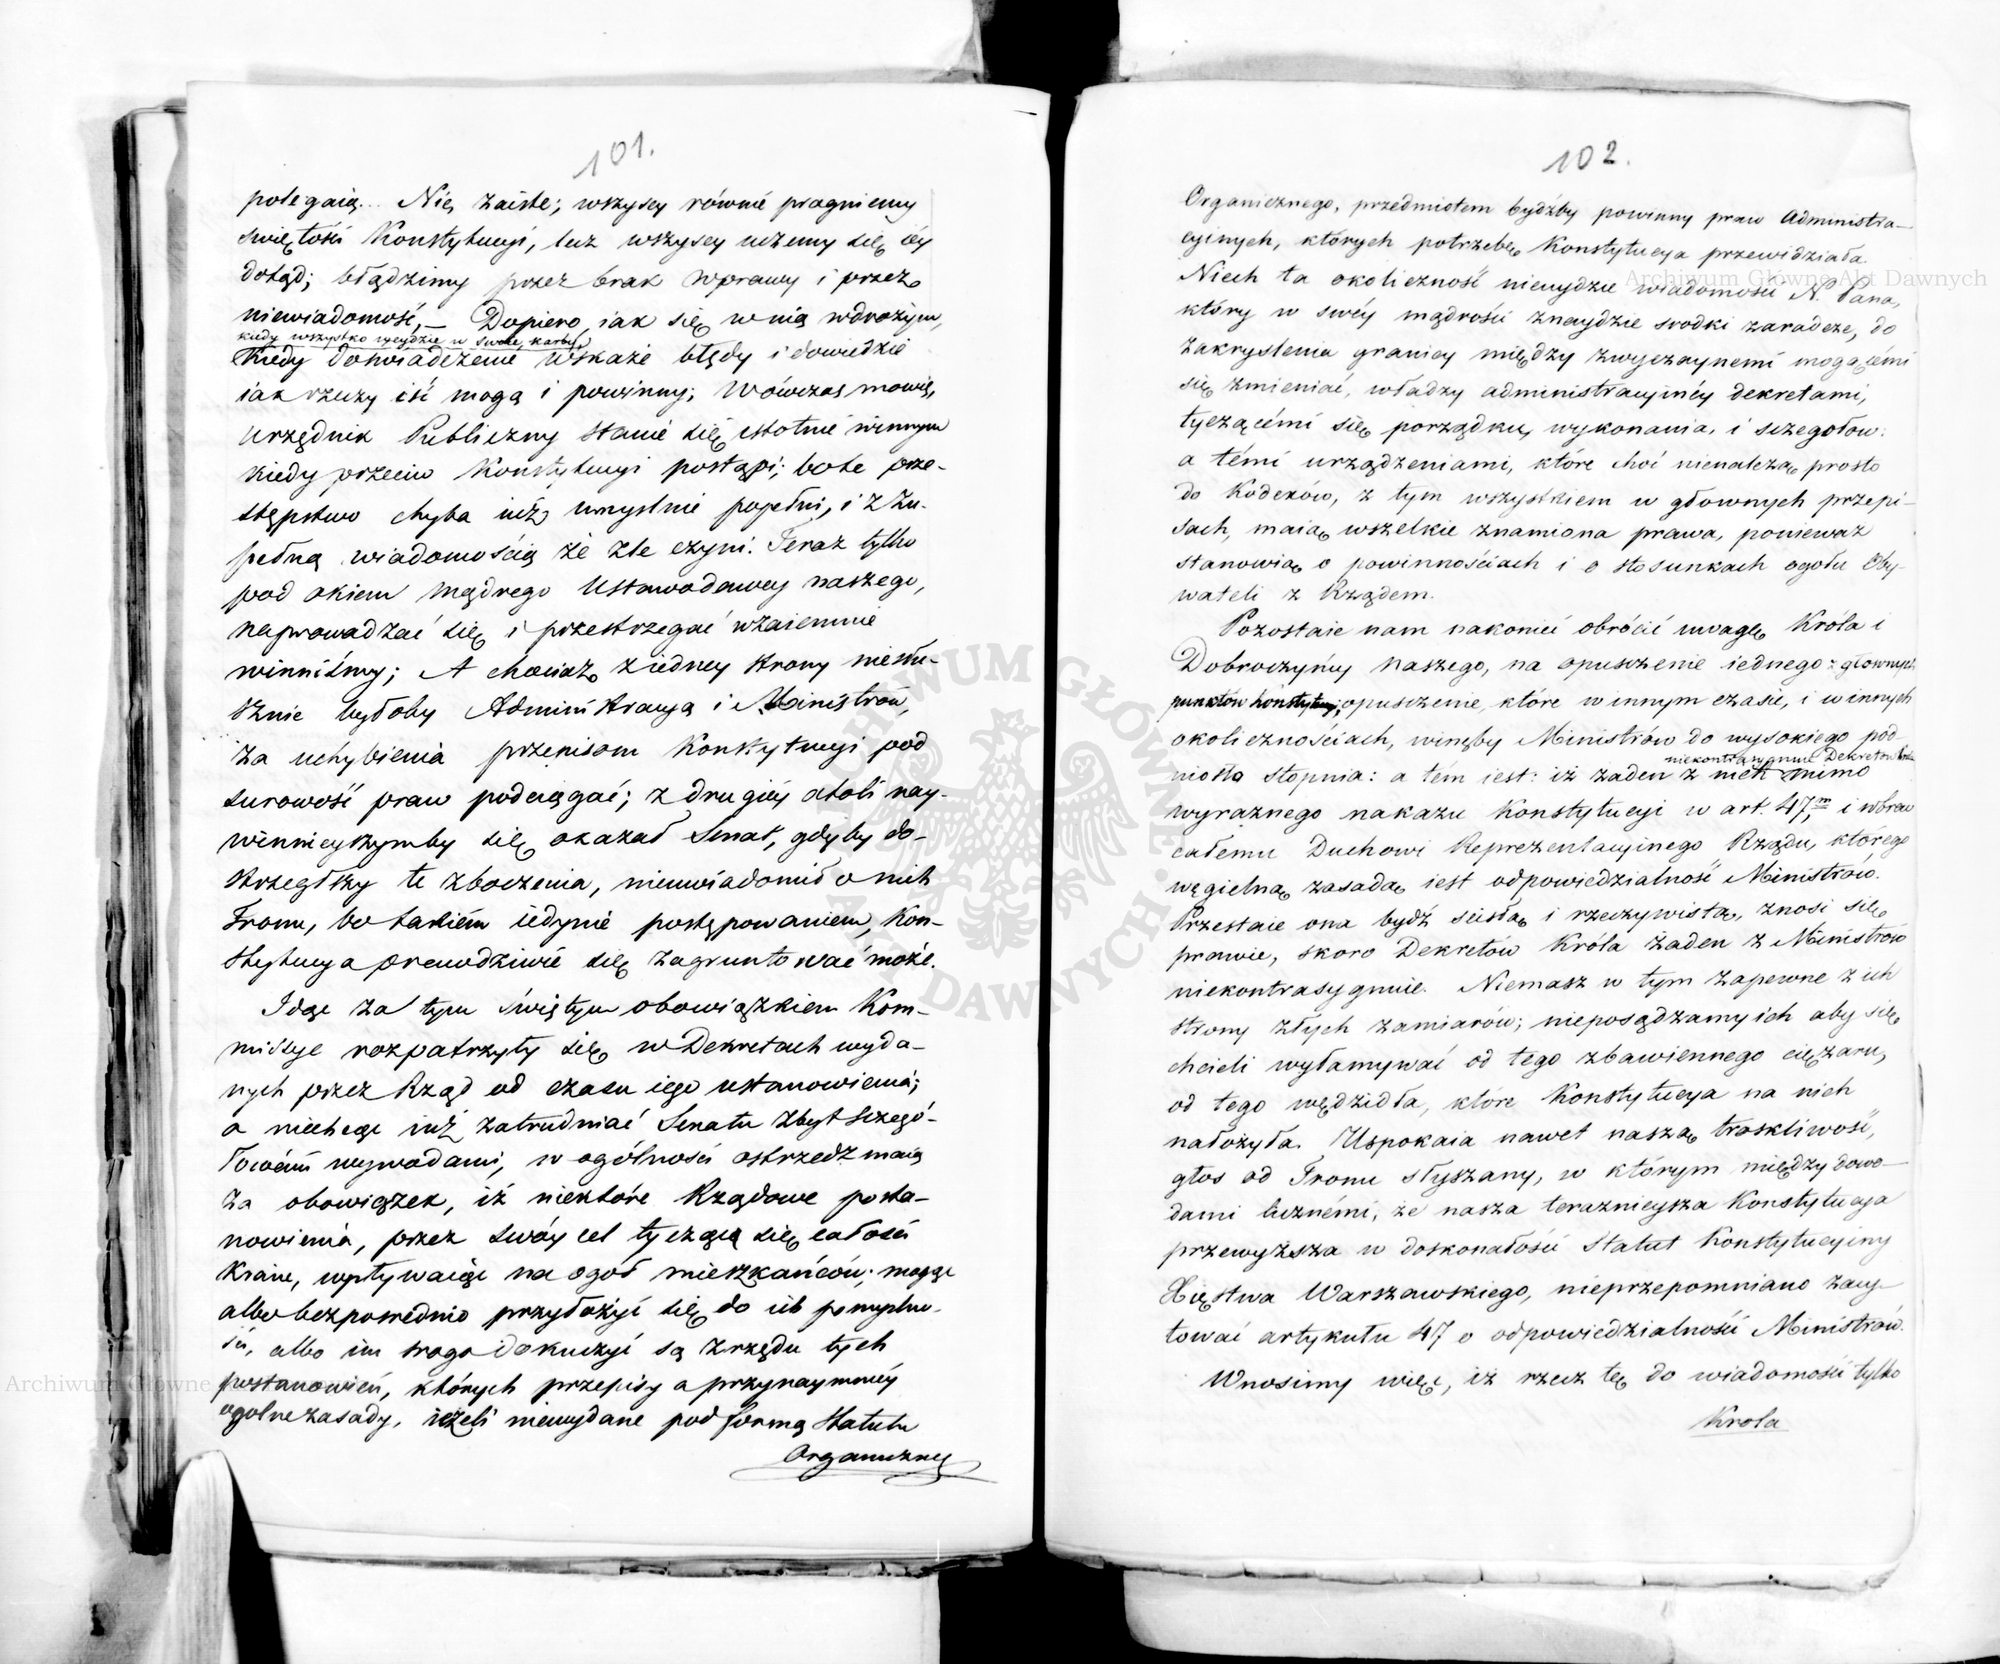 101.
polegaią. Nie, zaiste; wszyscy równie pragniemy
świętości Konstytucyi, lecz wszyscy uczemy się iey
dotąd; błądzimy przez brak wprawy i przez
niewiadomość,— Dopiero, iak się w nią wdrożym,
kiedy wszystko weydzie w swoie karby,
Kiedy doświadczenie wskaże błędy i dowiedzie
iak rzeczy iść mogą i powinny; Wówczas mowię,
Urzędnik Publiczny stanie się istotnie winnym
kiedy przeciw Konstytucyi postąpi; bo te prze-
stępstwo chyba iuż umyslnie popełni, i z zu-
pełną wiadomością że zle czyni. Teraz tylko
pod okiem mądrego Ustawodawcy naszego,
naprowadzać się i przestrzegać wzaiemnie
winniśmy; A chociaż z iedney strony niesłu-
sznie byłoby Administracyą i Ministrów,
za uchybienia przepisom Konstytucyi pod
surowość praw podciągać; z drugiéy atoli nay-
winnieyszymby się okazał Senat, gdyby do-
strzegłszy te zboczenia, nieuwiadomił o nich
Tronu, bo takiém iedynie postępowaniem, Kon-
stytucya prawdziwie się zagruntować może.
Idąc za tym świętym obowiązkiem Kom-
missye rozpatrzyły się w Dekretach wyda-
nych przez Rząd od czasu iego ustanowienia;
a niechcąc iuż zatrudniać Senatu zbyt szczegó-
łowémi wywodami, w ogólności ostrzedz maią
za obowiązek, iż niektóre Rządowe posta-
nowienia, przez swóy cel tyczące się całości
Kraiu, wpływaiące na ogół mieszkańców; mogące
albo bezpośrednio przyłożyć się do ich pomyslno-
ści, albo im srogo dokuczyć są z rzędu tych
postanowień, których przepisy a przynaymniéy
ogolne zasady, ieżeli niewydane pod formą Statutu
Organiczneg
102.
Organicznego, przedmiotem bydźby powinny praw Administra-
cyinych, których potrzebę Konstytucya przewidziała
Niech ta okoliczność nieuydzie wiadomości N. Pana,
który w swéy mądrości znaydzie srodki zaradcze, do
zakryslenia granicy między zwyczaynemi mogącémi
się zmieniać, władzy administracyinéy dekretami,
tyczącémi się porządku, wykonania, i szczegołów:
a témi urządzeniami, które choć nienależą prosto
do Kodexów, z tym wszystkiem w głownych przepi-
sach, maią wszelkie znamiona prawa, ponieważ
stanowią o powinnościach i o stosunkach ogołu Oby-
wateli z Rządem.
Pozostaie nam nakoniec obrócić uwagę Króla i
Dobroczyńcy naszego, na opuszczenie iednego z głownych
punktów Konstytucyi; opuszczenie, które w innym czasie, i w innych
okolicznościach, winęby Ministrów do wysokiego pod-
niekontrasygnuie Dekretów
niosło stopnia: a tém iest: iż żaden z nich mimo
wyraznego nakazu Konstytucyi w art. 47,m i wbrew
całemu Duchowi Reprezentacyinego Rządu, którego
węgielną zasadą iest odpowiedzialność Ministrów.
Przestaie ona bydź scisłą i rzeczywistą, znosi się
prawie, skoro Dekretów Króla żaden z Ministrów
niekontrasygnuie. Niemasz w tym zapewne z ich
strony złych zamiarów; nieposądzamy ich aby się
chcieli wyłamywać od tego zbawiennego ciężaru,
od tego wędzidła, które Konstytucya na nich
nałożyła. Uspokaia nawet naszą troskliwość,
głos od Tronu słyszany, w którym między dowo-
dami licznémi, że nasza terazniejsza Konstytucya
przewyższa w doskonałości Statut Konstytucyiny
Xięstwa Warszawskiego, nieprzepomniano zacy-
tować artykułu 47 o odpowiedzialności Ministrów.
Wnosimy więc, iż rzecz tę do wiadomości tylko
Krola
Archiwum Główne Akt Dawnych
ARCHIWUM GŁÓWNE AKT DAWNYCH